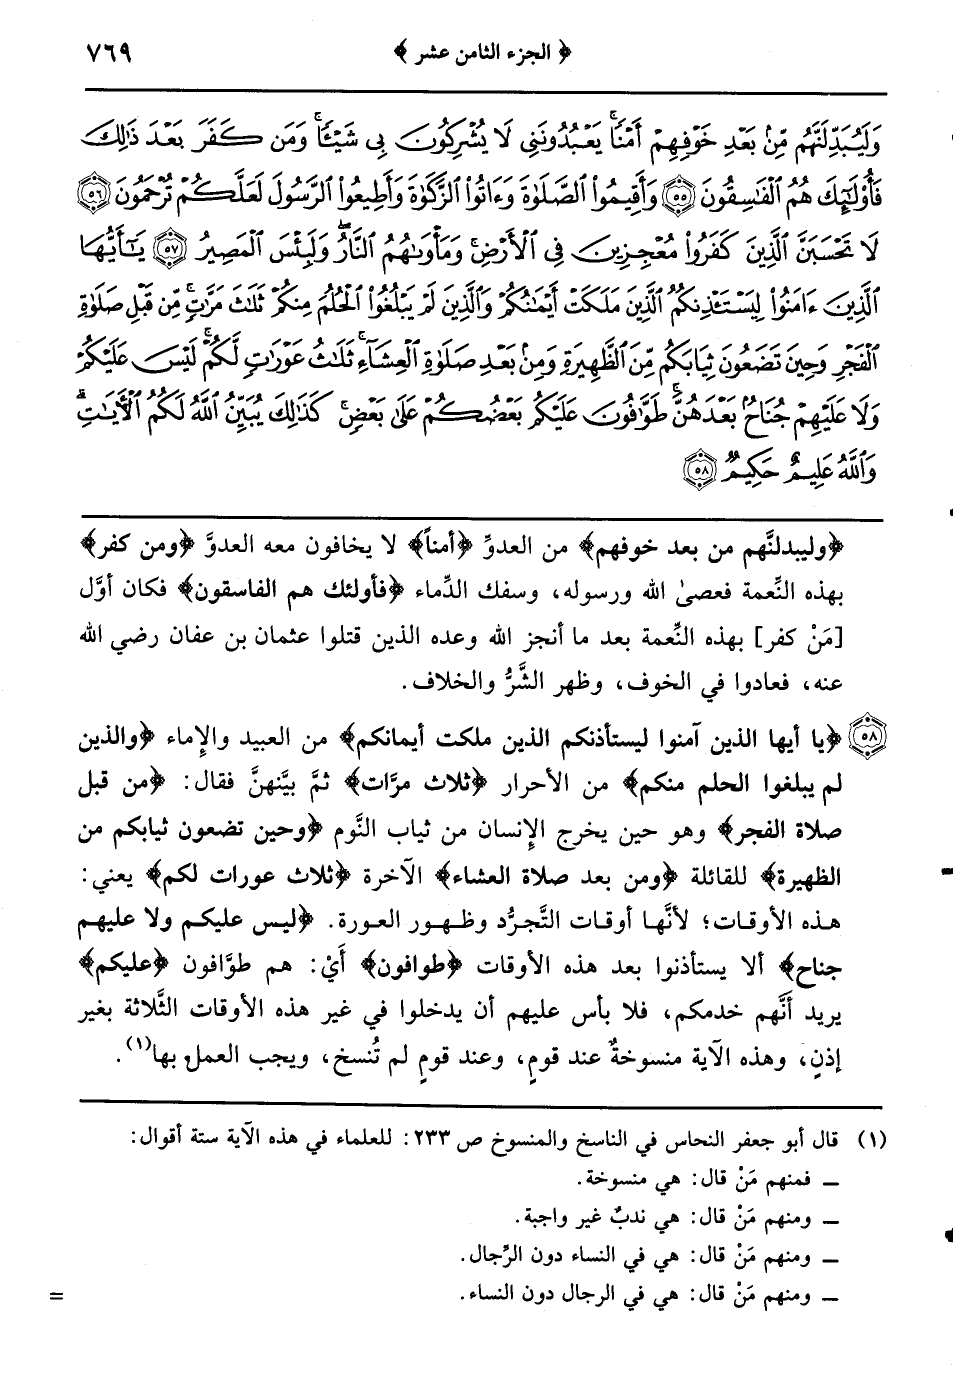 ﴿ الجزء الثامن عشر ﴾ ٧٦٩
وَلَيُبَدِّلَنَّهُم مِّنۢ بَعْدِ خَوْفِهِمْ أَمْنًا ۚ يَعْبُدُونَنِى لَا يُشْرِكُونَ بِى شَيْـًٔا ۚ وَمَن كَفَرَ بَعْدَ ذَٰلِكَ
فَأُو۟لَـٰٓئِكَ هُمُ ٱلْفَـٰسِقُونَ ﴿٥٥﴾ وَأَقِيمُوا۟ ٱلصَّلَوٰةَ وَءَاتُوا۟ ٱلزَّكَوٰةَ وَأَطِيعُوا۟ ٱلرَّسُولَ لَعَلَّكُمْ تُرْحَمُونَ ﴿٥٦﴾
لَا تَحْسَبَنَّ ٱلَّذِينَ كَفَرُوا۟ مُعْجِزِينَ فِى ٱلْأَرْضِ ۚ وَمَأْوَىٰهُمُ ٱلنَّارُ ۖ وَلَبِئْسَ ٱلْمَصِيرُ ﴿٥٧﴾ يَـٰٓأَيُّهَا
ٱلَّذِينَ ءَامَنُوا۟ لِيَسْتَـْٔذِنكُمُ ٱلَّذِينَ مَلَكَتْ أَيْمَـٰنُكُمْ وَٱلَّذِينَ لَمْ يَبْلُغُوا۟ ٱلْحُلُمَ مِنكُمْ ثَلَـٰثَ مَرَّٰتٍ ۚ مِّن قَبْلِ صَلَوٰةِ
ٱلْفَجْرِ وَحِينَ تَضَعُونَ ثِيَابَكُم مِّنَ ٱلظَّهِيرَةِ وَمِنۢ بَعْدِ صَلَوٰةِ ٱلْعِشَآءِ ۚ ثَلَـٰثُ عَوْرَٰتٍ لَّكُمْ ۚ لَيْسَ عَلَيْكُمْ
وَلَا عَلَيْهِمْ جُنَاحٌۢ بَعْدَهُنَّ ۚ طَوَّٰفُونَ عَلَيْكُم بَعْضُكُمْ عَلَىٰ بَعْضٍ ۚ كَذَٰلِكَ يُبَيِّنُ ٱللَّهُ لَكُمُ ٱلْـَٔايَـٰتِ ۗ
وَٱللَّهُ عَلِيمٌ حَكِيمٌ ﴿٥٨﴾
﴿وليبدلنَّهم من بعد خوفهم﴾ من العدوِّ ﴿أمناً﴾ لا يخافون معه العدوَّ ﴿ومن كفر﴾
بهذه النِّعمة فعصىٰ الله ورسوله، وسفك الدِّماء ﴿فأولئك هم الفاسقون﴾ فكان أوَّل
[مَنْ كفر] بهذه النِّعمة بعد ما أنجز الله وعده الذين قتلوا عثمان بن عفان رضي الله
عنه، فعادوا في الخوف، وظهر الشَّرُّ والخلاف.
﴿٥٨﴾ ﴿يا أيها الذين آمنوا ليستأذنكم الذين ملكت أيمانكم﴾ من العبيد والإِماء ﴿والذين
لم يبلغوا الحلم منكم﴾ من الأحرار ﴿ثلاث مرَّات﴾ ثمَّ بيَّنهنَّ فقال: ﴿من قبل
صلاة الفجر﴾ وهو حين يخرج الإِنسان من ثياب النَّوم ﴿وحين تضعون ثيابكم من
الظهيرة﴾ للقائلة ﴿ومن بعد صلاة العشاء﴾ الآخرة ﴿ثلاث عورات لكم﴾ يعني:
هذه الأوقات؛ لأنَّها أوقات التَّجرُّد وظهور العورة. ﴿ليس عليكم ولا عليهم
جناح﴾ ألا يستأذنوا بعد هذه الأوقات ﴿طوافون﴾ أَيْ: هم طوَّافون ﴿عليكم﴾
يريد أَنَّهم خدمكم، فلا بأس عليهم أن يدخلوا في غير هذه الأوقات الثَّلاثة بغير
إذنٍ، وهذه الآية منسوخةٌ عند قومٍ، وعند قومٍ لم تُنسخ، ويجب العمل بها(١).
(١) قال أبو جعفر النحاس في الناسخ والمنسوخ ص ٢٣٣: للعلماء في هذه الآية ستة أقوال:
ــ فمنهم مَنْ قال: هي منسوخة.
ــ ومنهم مَنْ قال: هي ندبٌ غير واجبة.
ــ ومنهم مَنْ قال: هي في النساء دون الرِّجال.
ــ ومنهم مَنْ قال: هي في الرجال دون النساء. =